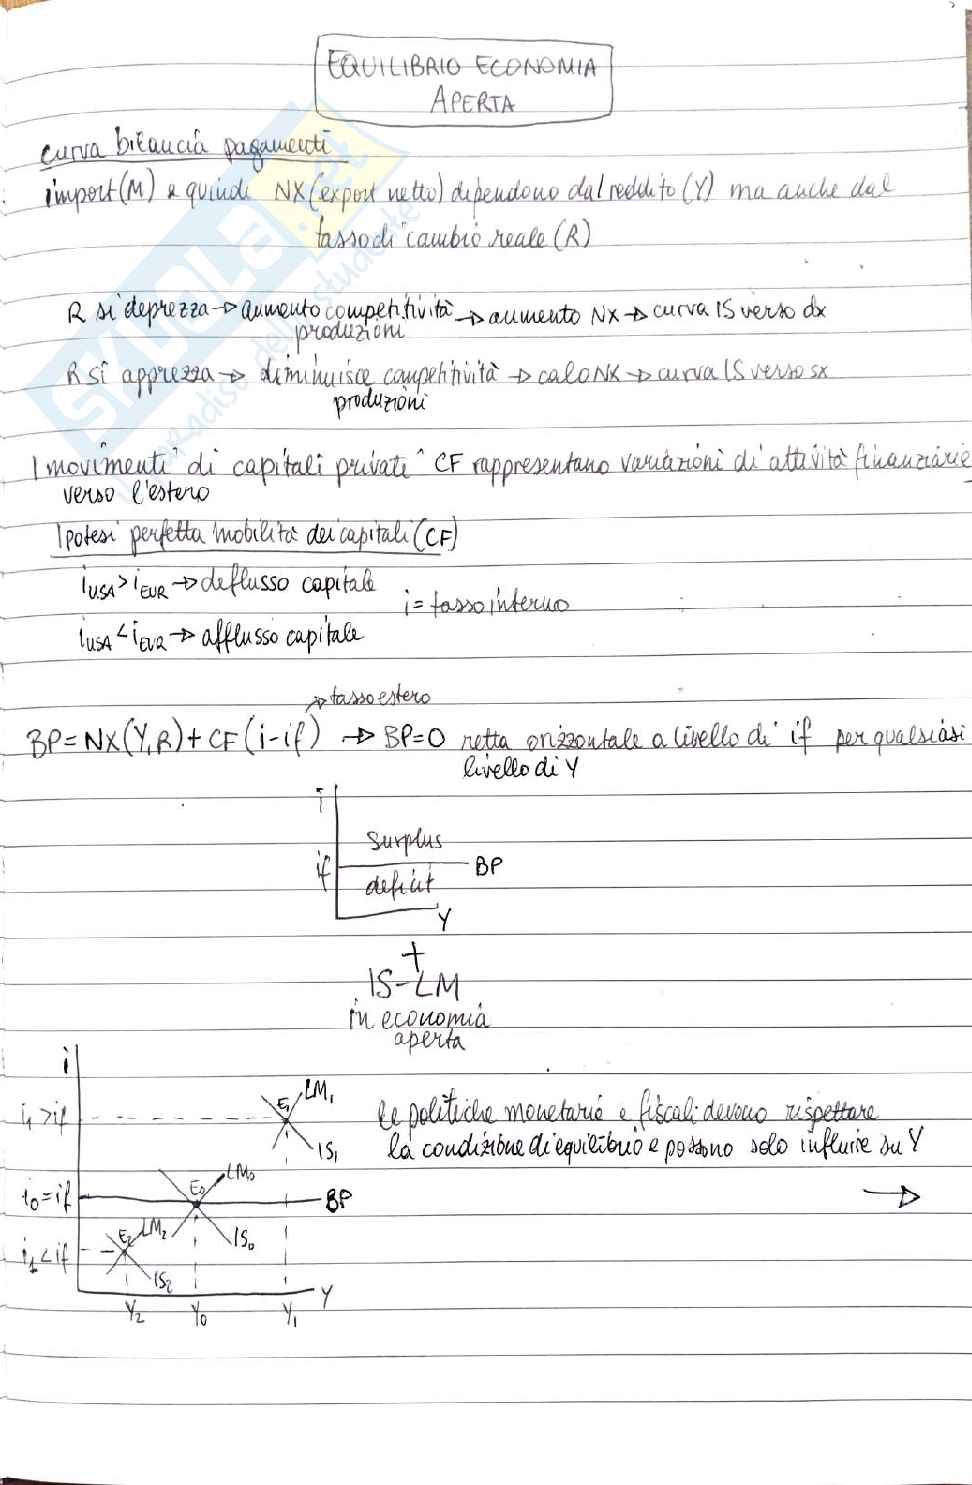 EQUILIBRIO ECONOMIA
APERTA
curva bilancia pagamenti
import (M) e quindi NX (export netto) dipendono dal reddito (Y) ma anche dal
tasso di cambio reale (R)
R si deprezza → aumento competitività → aumento NX → curva IS verso dx
produzioni
R si apprezza → diminuisce competitività → calo NX → curva IS verso sx
produzioni
I movimenti di capitali privati CF rappresentano variazioni di attività finanziarie
verso l'estero
Ipotesi perfetta mobilità dei capitali (CF)
iUSA > iEUR → deflusso capitale
i = tasso interno
iUSA < iEUR → afflusso capitale
→ tasso estero
BP = NX (Y,R) + CF (i - if) → BP=0 retta orizzontale a livello di if per qualsiasi
livello di Y
i
surplus
if
BP
deficit
Y
+
IS-LM
in economia
aperta
i
E1 LM1
i1 > if
IS1
le politiche monetarie e fiscali devono rispettare
la condizione di equilibrio e possono solo influire su Y
E0 LM0
i0 = if
BP
→
E2 LM2
IS0
i1 < if
IS2
Y
Y2 Y0 Y1
SKUOLA.net
paradiso dello studente